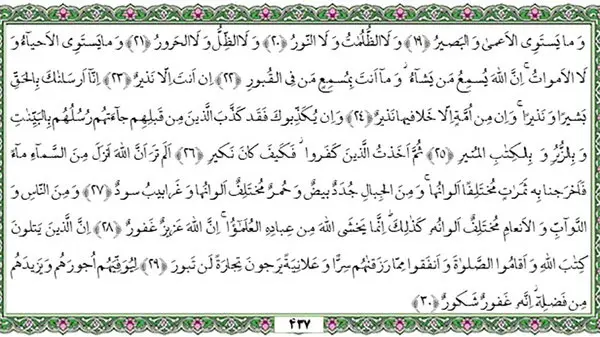 وَ ما يَستَوِى الاَعمىٰ وَ البَصيرُ ﴿١٩﴾ وَ لَا الظُّلُمٰتُ وَ لَا النّورُ ﴿٢٠﴾ وَ لَا الظِّلُّ وَ لَا الحَرورُ ﴿٢١﴾ وَ ما يَستَوِى الاَحيآءُ وَ
لَا الاَمواتُ ۚ اِنَّ اللهَ يُسمِعُ مَن يَشآءُ ۖ وَ ما اَنتَ بِمُسمِعٍ مَن فِى القُبورِ ﴿٢٢﴾ اِن اَنتَ اِلّا نَذيرٌ ﴿٢٣﴾ اِنّا اَرسَلنٰكَ بِالحَقِّ
بَشيرًا وَ نَذيرًا ۚ وَ اِن مِن اُمَّةٍ اِلّا خَلا فيها نَذيرٌ ﴿٢٤﴾ وَ اِن يُكَذِّبوكَ فَقَد كَذَّبَ الَّذينَ مِن قَبلِهِم جآءَتهُم رُسُلُهُم بِالبَيِّنٰتِ
وَ بِالزُّبُرِ وَ بِالكِتٰبِ المُنيرِ ﴿٢٥﴾ ثُمَّ اَخَذتُ الَّذينَ كَفَروا ۖ فَكَيفَ كانَ نَكيرِ ﴿٢٦﴾ اَلَم تَرَ اَنَّ اللهَ اَنزَلَ مِنَ السَّمآءِ مآءً
فَاَخرَجنا بِه ثَمَرٰتٍ مُختَلِفًا اَلوانُها ۚ وَ مِنَ الجِبالِ جُدَدٌ بيضٌ وَ حُمرٌ مُختَلِفٌ اَلوانُها وَ غَرابيبُ سودٌ ﴿٢٧﴾ وَ مِنَ النّاسِ وَ
الدَّوآبِّ وَ الاَنعامِ مُختَلِفٌ اَلوانُه كَذٰلِكَ ۗ اِنَّما يَخشَى اللهَ مِن عِبادِهِ العُلَمٰؤُا ۗ اِنَّ اللهَ عَزيزٌ غَفورٌ ﴿٢٨﴾ اِنَّ الَّذينَ يَتلونَ
كِتٰبَ اللهِ وَ اَقامُوا الصَّلوٰةَ وَ اَنفَقوا مِمّا رَزَقنٰهُم سِرًّا وَ عَلانِيَةً يَرجونَ تِجارَةً لَن تَبورَ ﴿٢٩﴾ لِيُوَفِّيَهُم اُجورَهُم وَ يَزيدَهُم
مِن فَضلِه ۚ اِنَّه غَفورٌ شَكورٌ ﴿٣٠﴾
۴۳۷